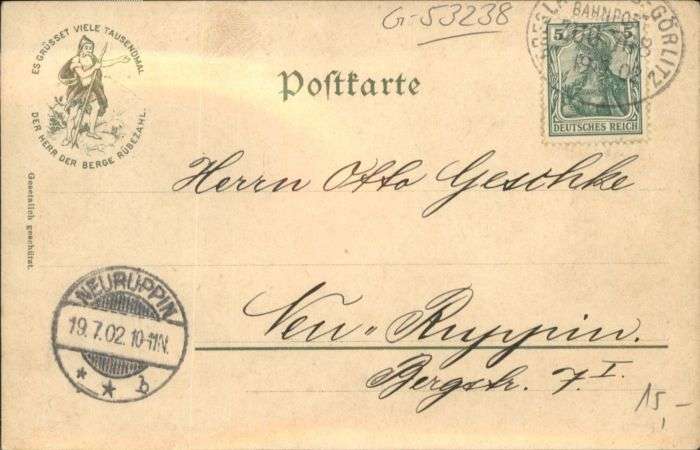 G-53238
ES GRÜSSET VIELE TAUSENDMAL
DER HERR DER BERGE RÜBEZAHL.
Postkarte
GÖRLITZ
BAHNPOST
5 5
DEUTSCHES REICH
Gesetzlich geschützt.
Herrn Otto Geschke
NEURUPPIN
19.7.02.10-11N.
* * b
Neu-Ruppin.
Bergstr. 7 I.
15,-